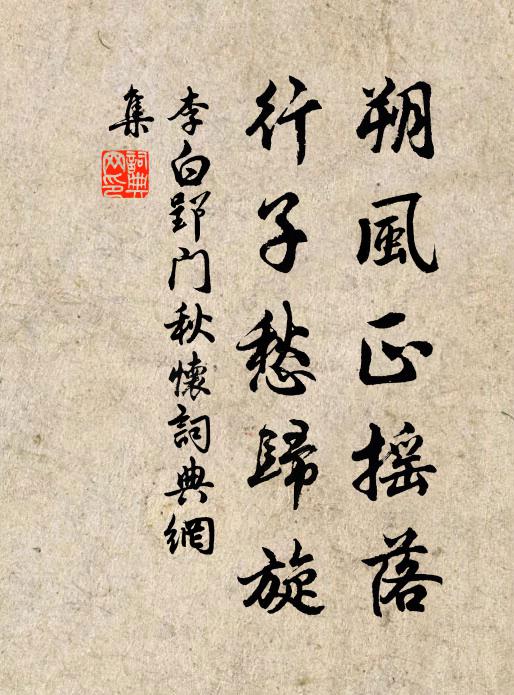 朔風正搖落
行子愁歸旋
李白郢门秋懷詞典網
集
詞典
网印